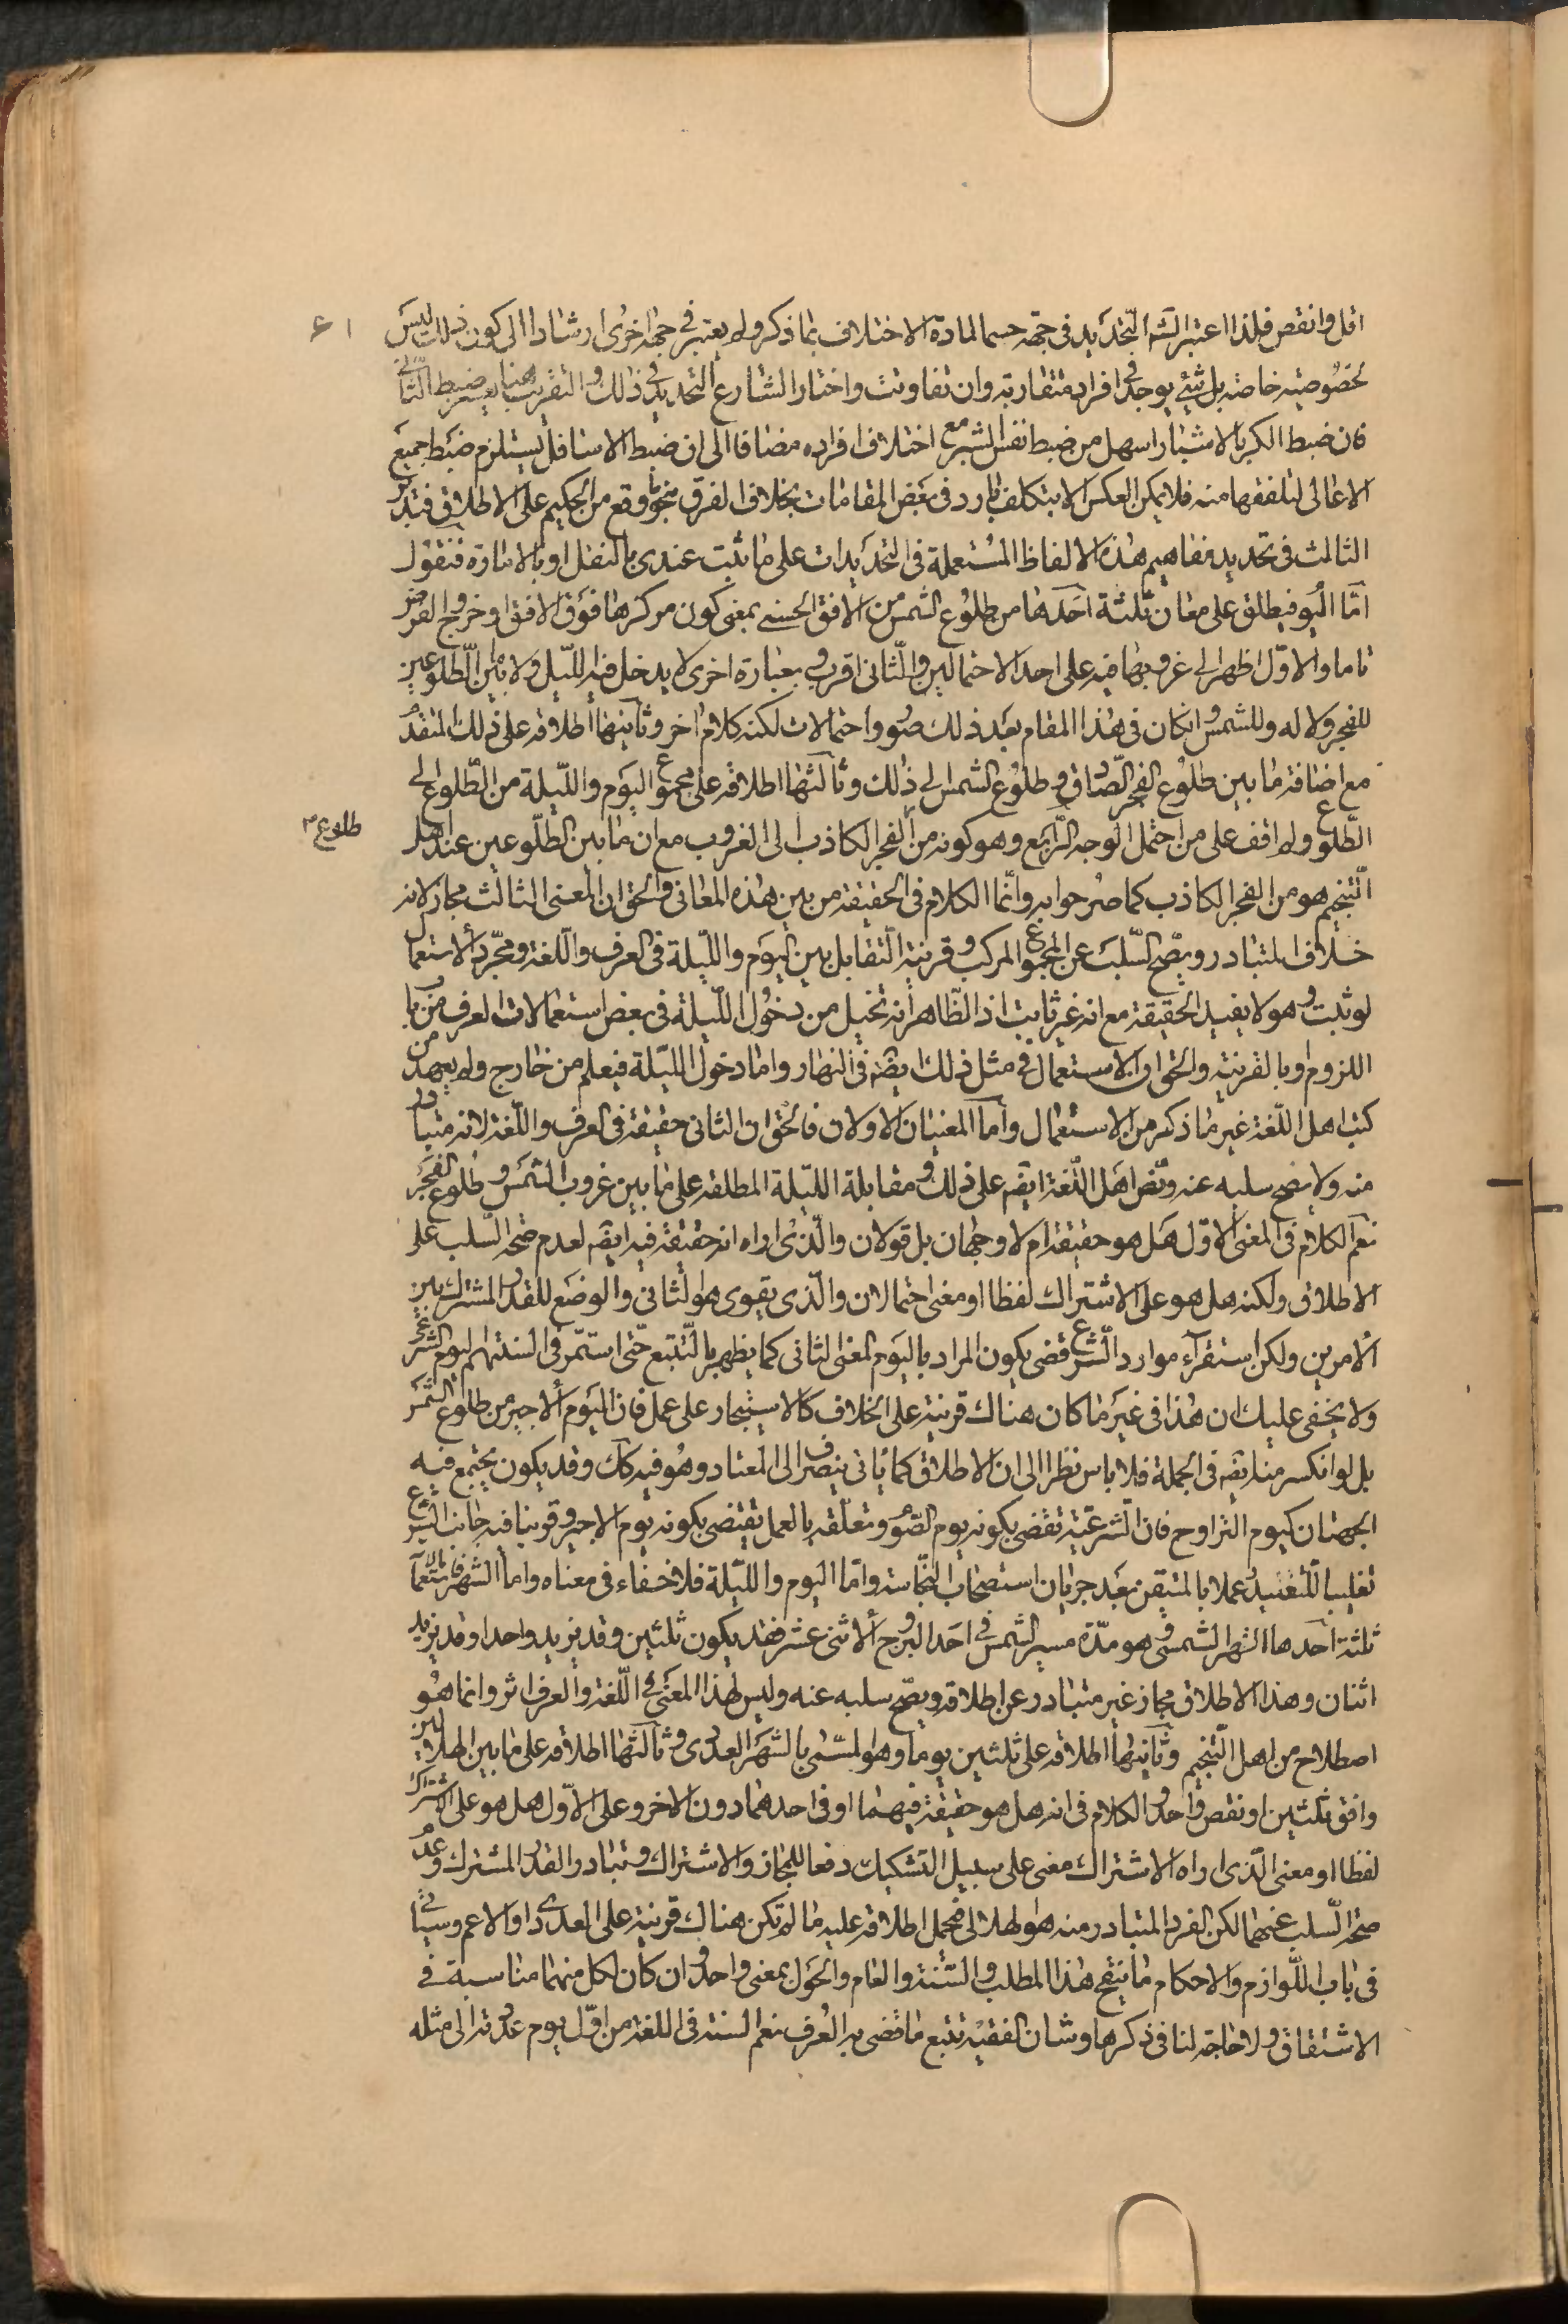 ٦١
اقل وانقص فلذا اعتبر الشارع التحديد في جهة حسما لمادة الاختلاف بما ذكر ولم يعتبر في جهة اخرى ارشادا الى كون ذلك ليس
لخصوصية خاصة بل شئ يوجد في افراد متقاربة وان تفاوتت واختار الشارع التحديد في ذلك والتقريب هنا بعسر ضبط الثاني
فان ضبط الكر بالاشبار اسهل من ضبط نفس الشبر مع اختلاف افراده مضافا الى ان ضبط الاسافل يستلزم ضبط جميع
الاعالى لتلفقها منه فلا يمكن العكس الا بتكلف بارد في بعض المقامات بخلاف الفرق بنحو وقع من الحكيم على الاطلاق فتدبر
الثالث في تحديد مفاهيم هذه الالفاظ المستعملة في التحديدات على ما ثبت عندى بالنقل او بالامارة فنقول
امّا اليوم فيطلق على معان ثلثة احدها من طلوع الشمس من الافق الحسى بمعنى كون مركزها فوق الافق او خروج القرص
تاما والاول اظهر الى غروبها فيه على احد الاحتمالين والثانى اقرب وبعبارة اخرى لا يدخل فيه الليل ولا ما بين الطلوعين
للفجر ولا له وللشمس وان كان في هذا المقام بعد ذلك صور واحتمالات لكنه كلام اخر وثانيها اطلاقه على ذلك المتقدم
مع اضافة ما بين طلوع الفجر الصادق وطلوع الشمس الى ذلك وثالثها اطلاقه على مجموع اليوم والليلة من الطلوع الى
الطلوع ولم اقف على من احتمل الوجه الرابع وهو كونه من الفجر الكاذب الى الغروب مع ان ما بين الطلوعين عند اهل
طلوع
التنجيم هو من الفجر الكاذب كما صرحوا به وانّما الكلام في الحقيقة من بين هذه المعانى والحق ان المعنى الثالث مجاز لانه
خلاف المتبادر ويصح السلب عن المجموع المركب وقرينة التقابل بين اليوم والليلة في العرف واللغة ومجرد الاستعمال
لو ثبت وهو لا يفيد الحقيقة مع انه غير ثابت اذ الظاهر انه تخيل من دخول الليلة في بعض استعمالات العرف من باب
اللزوم او بالقرينة والحق ان الاستعمال في مثل ذلك ايضه في النهار واما دخول الليلة فيعلم من خارج ولم يعهد من
كتب اهل اللغة غير ما ذكر من الاستعمال وامّا المعنيان الاولان فالحق ان الثانى حقيقة في العرف واللغة لانه متبادر
منه ولا يصح سلبه عنه ونص اهل اللغة ايضه على ذلك ومقابلة الليلة المطلقة على ما بين غروب الشمس وطلوع الفجر
نعم الكلام في المعنى الاول هل هو حقيقة ام لا وجهان بل قولان والذى اراه انه حقيقة فيه ايضه لعدم صحة السلب على
الاطلاق ولكنه هل هو على الاشتراك لفظا او معنى احتمالان والذى يقوى هو الثانى والوضع للقدر المشترك بين
الامرين ولكن استقراء موارد الشرع قضى بكون المراد باليوم المعنى الثانى كما يظهر بالتتبع حتى استمر في السنتهم اليوم الشرعى
ولا يخفى عليك ان هذا في غير ما كان هناك قرينة على الخلاف كالاستيجار على عمل فان اليوم الاجير من طلوع الشمس
بل لو انكسر منه ايضه في الجملة فلا باس نظرا الى ان الاطلاق كما ياتى ينصرف الى المعتاد وهو فيه كك وقد يكون يجتمع فيه
الجهتان كيوم التراوح فان الشرعية تقضى بكونه يوم الصوم وتعلقه بالعمل يقتضى بكونه يوم الاجير وقوينا فيه جانب الشرع
تغليبا للتعبد وعملا بالمتيقن بعد جريان استصحاب النجاسة وامّا اليوم والليلة فلا خفاء في معناه واما الشهر فاستعمالاته
ثلثة احدها الشهر الشمسى وهو مدّة مسير الشمس في احد البروج الاثنى عشر فقد يكون ثلثين وقد يزيد واحدا وقد يزيد
اثنان وهذا الاطلاق مجاز غير متبادر عن اطلاقه ويصح سلبه عنه وليس لهذا المعنى في اللغة والعرف اثر وانما هو
اصطلاح من اهل التنجيم وثانيها اطلاقه على ثلثين يوما وهو المسمى بالشهر العددى وثالثها اطلاقه على ما بين الهلالين
وافق ثلثين او نقص واحد والكلام في انه هل هو حقيقة فيهما او في احدهما دون الاخر وعلى الاول هل هو على الاشتراك
لفظا او معنى الذى اراه الاشتراك معنى على سبيل التشكيك دفعا للمجاز والاشتراك وتبادر القدر المشترك وعدم
صحة السلب عنهما لكن الفرد المتبادر منه هو الهلالى فيحمل اطلاقه عليه ما لم تكن هناك قرينة على العددى او الاعم وسياتى
في باب اللوازم والاحكام ما ينقح هذا المطلب والسنة والعام والحول بمعنى واحد وان كان لكل منهما مناسبة في
الاشتقاق ولا حاجة لنا في ذكرها وشان الفقيه تتبع ما قضى به العرف نعم السنة في اللغة من اوّل يوم عددته الى مثله